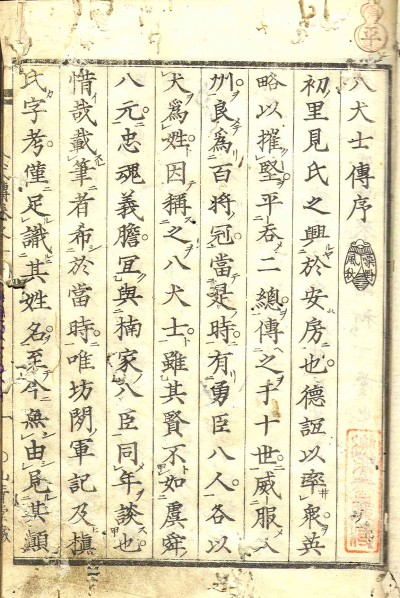 八犬士傳序
初里見氏之興於安房也德誼以率衆英
略以摧堅平呑二總傳之于十世威服八
州良爲百將冠當是時有勇臣八人各以
犬爲姓因稱之八犬士雖其賢不如虞舜
八元忠魂義膽宜與楠家八臣同年談也
惜哉載筆者希於當時唯坊間軍記及槙
氏字考僅足識其姓名至今無由見其顚